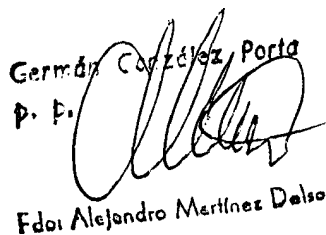 Germán González Porta
p. p.
Fdo: Alejandro Martínez Dalso